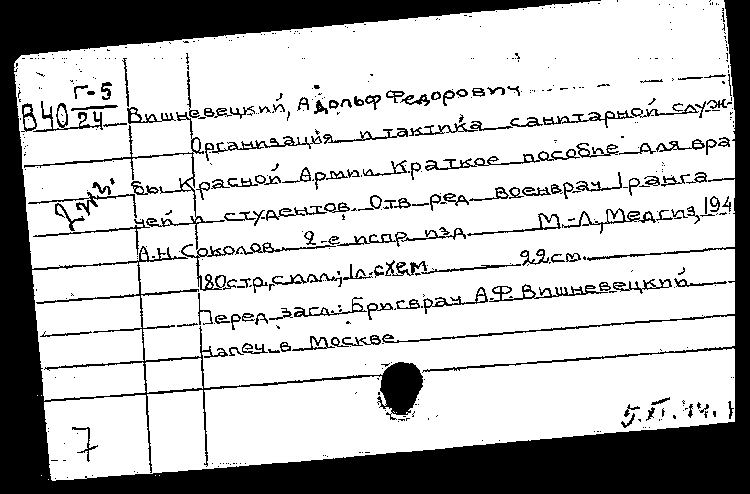 В40 Г-5/24 Вишневецкий, Адольф Федорович
Организация и тактика санитарной служ-
бы Красной Армии. Краткое пособие для вра-
2 экз.
чей и студентов. Отв. ред. военврач 1 ранга
А.Н. Соколов. 2-е испр. изд. М.-Л., Медгиз, 194
180 стр., с илл.; 1 л. схем. 22 см.
Перед загл.: Бригврач А.Ф. Вишневецкий.
Напеч. в Москве.
7
5.XI.44.